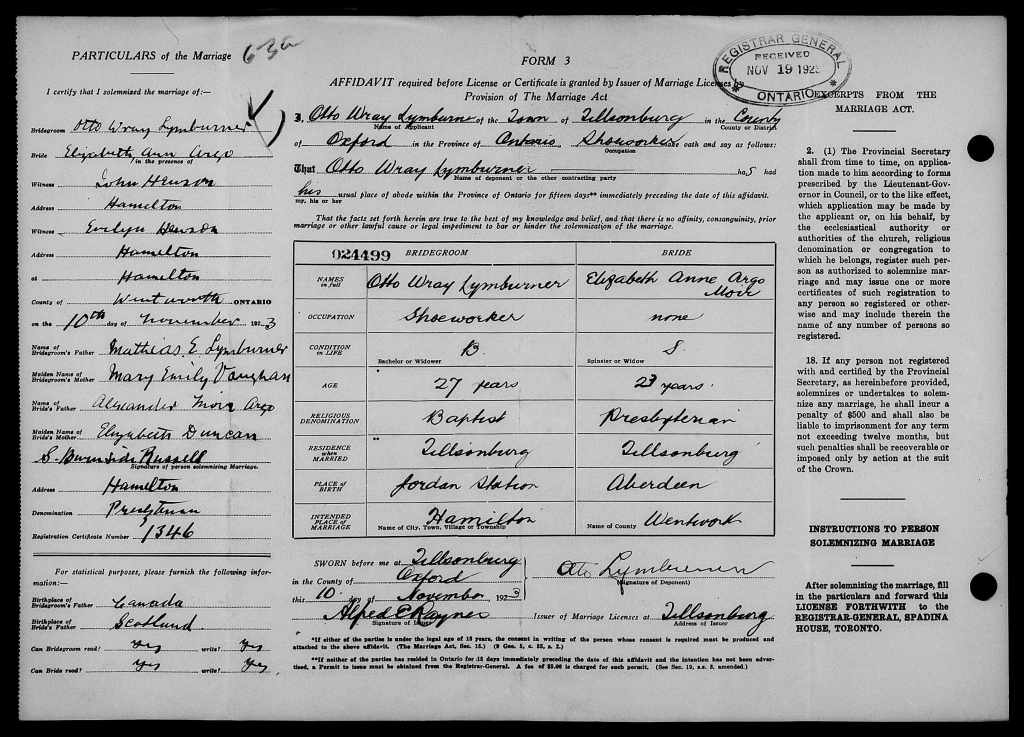 PARTICULARS of the Marriage
63a
I certify that I solemnized the marriage of:—
Bridegroom Otto Wray Lymburner
Bride Elizabeth Ann Argo
in the presence of
Witness John Henson
Address Hamilton
Witness Evelyn Henson
Address Hamilton
at Hamilton
County of Wentworth ONTARIO
on the 10th day of November 1923
Name of Bridegroom's Father Mathias E. Lymburner
Maiden Name of Bridegroom's Mother Mary Emily Vaughan
Name of Bride's Father Alexander Moir Argo
Maiden Name of Bride's Mother Elizabeth Duncan
S. Burnside Russell
Signature of person solemnizing Marriage.
Address Hamilton
Denomination
Registration Certificate Number 1346
For statistical purposes, please furnish the following information:—
Birthplace of Bridegroom's Father Canada
Birthplace of Bride's Father Scotland
Can Bridegroom read? Yes write? Yes
Can Bride read? Yes write? Yes
FORM 3
AFFIDAVIT required before License or Certificate is granted by Issuer of Marriage Licenses by
Provision of The Marriage Act
I, Otto Wray Lymburner of the Town of Tillsonburg in the County
Name of Applicant County or District
of Oxford in the Province of Ontario, Shoeworker make oath and say as follows:
Occupation
That Otto Wray Lymburner has had
Name of deponent or the other contracting party
his usual place of abode within the Province of Ontario for fifteen days** immediately preceding the date of this affidavit.
my, his or her
That the facts set forth herein are true to the best of my knowledge and belief, and that there is no affinity, consanguinity, prior
marriage or other lawful cause or legal impediment to bar or hinder the solemnization of the marriage.
024499 BRIDEGROOM BRIDE
NAMES in full Otto Wray Lymburner Elizabeth Anne Argo Moir
OCCUPATION Shoeworker none
CONDITION IN LIFE B. S.
Bachelor or Widower Spinster or Widow
AGE * 27 years 23 years
RELIGIOUS DENOMINATION Baptist Presbyterian
RESIDENCE when MARRIED ** Tillsonburg Tillsonburg
PLACE of BIRTH Jordan Station Aberdeen
INTENDED PLACE of MARRIAGE Hamilton Wentwork
Name of City, Town, Village or Township Name of County
SWORN before me at Tillsonburg
in the County of Oxford
this 10 day of November 1923
Otto Lymburner
(Signature of Deponent)
Alfred E Raynes Issuer of Marriage Licenses at Tillsonburg
Signature of Issuer Address of Issuer
*If either of the parties is under the legal age of 18 years, the consent in writing of the person whose consent is required must be produced and
attached to the above affidavit. (The Marriage Act, Sec. 15.) (9 Geo. 5, c. 35, s. 2.)
**If neither of the parties has resided in Ontario for 15 days immediately preceding the date of this affidavit and the intention has not been advertised, a Permit to issue must be obtained from the Registrar-General. A fee of $5.00 is charged for such permit. (See Sec. 19, s.s. 5, amended.)
REGISTRAR GENERAL
RECEIVED
NOV 19 192
ONTARIO
EXCERPTS FROM THE
MARRIAGE ACT.
2. (1) The Provincial Secretary
shall from time to time, on application
made to him according to forms
prescribed by the Lieutenant-Governor
in Council, or to the like effect,
which application may be made by
the applicant or, on his behalf, by
the ecclesiastical authority or
authorities of the church, religious
denomination or congregation to
which he belongs, register such person
as authorized to solemnize marriage
and may issue one or more
certificates of such registration to
any person so registered or otherwise
and may include therein the
name of any number of persons so
registered.
18. If any person not registered
with and certified by the Provincial
Secretary, as hereinbefore provided,
solemnizes or undertakes to solemnize
any marriage, he shall incur a
penalty of $500 and shall also be
liable to imprisonment for any term
not exceeding twelve months, but
such penalties shall be recoverable or
imposed only by action at the suit
of the Crown.
INSTRUCTIONS TO PERSON
SOLEMNIZING MARRIAGE
After solemnizing the marriage, fill
in the particulars and forward this
LICENSE FORTHWITH to the
REGISTRAR-GENERAL, SPADINA
HOUSE, TORONTO.